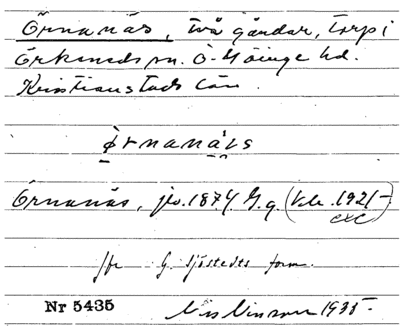 Örnanäs, två gårdar, torp i
Örkeneds sn. Ö. Göinge hd.
Kristianstads län.
Örnanäs, jvo. 1874. G.g. (Kle. 1921–
exc)
Jfr G. Sjöstedts form.
Nr 5435
1935.